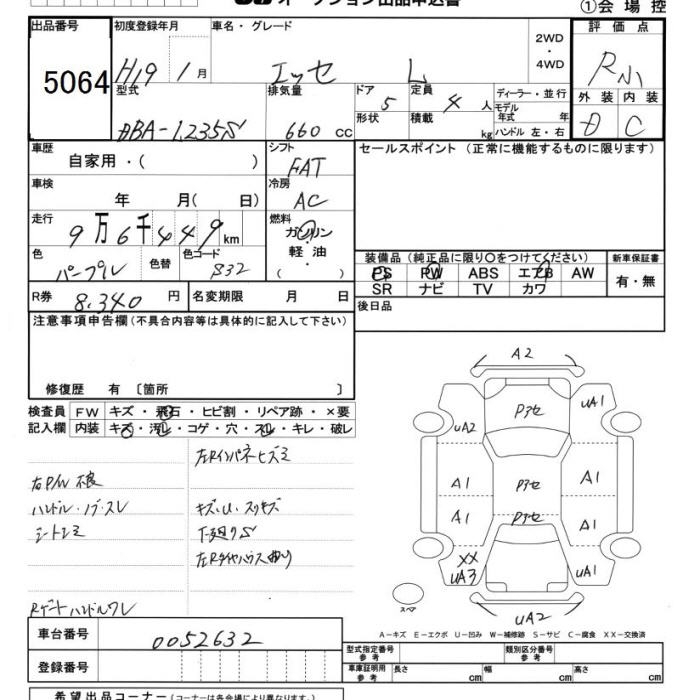 オークション出品申込書
①会場控
出品番号
初度登録年月
車名・グレード
評価点
5064
H19 1月
エッセ L
2WD
・
4WD
R小
型式
排気量
ドア
定員
ディーラー・並行
外装
内装
DBA-L235S
660 CC
5
4人
モデル年式 年
D
C
形状
積載 kg
ハンドル 左・右
車歴
自家用・( )
シフト
FAT
セールスポイント (正常に機能するものに限ります)
車検
年 月( 日)
冷房
AC
走行
9万6千449km
燃料
ガソリン
・
軽油
( )
色
パープル
色替
色コード
B32
装備品 (純正品に限り○をつけてください)
新車保証書
PS PW ABS エアB AW
有・無
SR ナビ TV カワ
R券
8,340 円
名変期限 月 日
後日品
注意事項申告欄(不具合内容等は具体的に記入して下さい)
修復歴 有 〔箇所 〕
検査員
記入欄
FW キズ・飛石・ヒビ割・リペア跡・×要
内装 キズ・汚レ・コゲ・穴・スレ・キレ・破レ
左Rインパネヒズミ
右P/W不良
ハンドル・ノブ・スレ
キズ・U・スリキズ
シートシミ
下廻りS
左Rタイヤハウス曲り
Rゲートハンドルワレ
A2
Pヌセ
UA1
UA2
A1
Pヌセ
A1
A1
Pヌセ
A1
XX
UA3
UA1
スペア
UA2
A-キズ E-エクボ U-凹み W-補修跡 S-サビ C-腐食 XX-交換済
車台番号
0052632
登録番号
型式指定番号
参考
類別区分番号
参考
車庫証明用
参考
長さ cm
幅 cm
高さ cm
希望出品コーナー(コーナーは各会場により異なります)